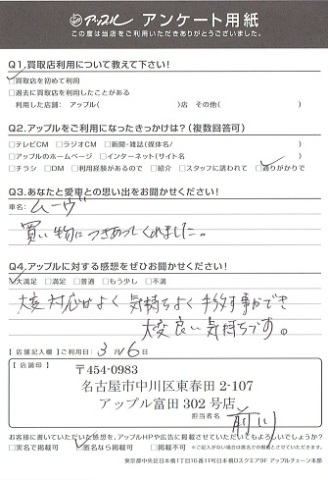 アップル アンケート用紙
この度は当店をご利用いただきありがとうございました。
Q1.買取店利用について教えて下さい!
☑買取店を初めて利用
□過去に買取店を利用したことがある
利用した店舗: アップル( )店 その他( )
Q2.アップルをご利用になったきっかけは?(複数回答可)
□テレビCM □ラジオCM □新聞・雑誌(媒体名/ )
□アップルのホームページ □インターネット(サイト名 )
□チラシ □DM □利用経験があるので □紹介 □スタッフに誘われて ☑通りがかりで
Q3.あなたと愛車との思い出をお聞かせください!
車名:
ムーヴ
買い物につきあってくれました。
Q4.アップルに対する感想をぜひお聞かせください!
☑大満足 □満足 □普通 □もう少し □不満
大変対応がよく 気持ちよく手続き事ができ
大変良い気持ちです。
【店舗記入欄】ご利用日: 3月6日
【店舗印】
〒454-0983
名古屋市中川区東春田2-107
アップル富田302号店
担当者名 前川
お客様に書いていただいた感想を、アップルHPや広告に掲載させていただいてもよろしいでしょうか?
□実名で掲載可 ☑匿名なら掲載可 □掲載不可
東京都中央区日本橋1丁目
アップルチェーン本部